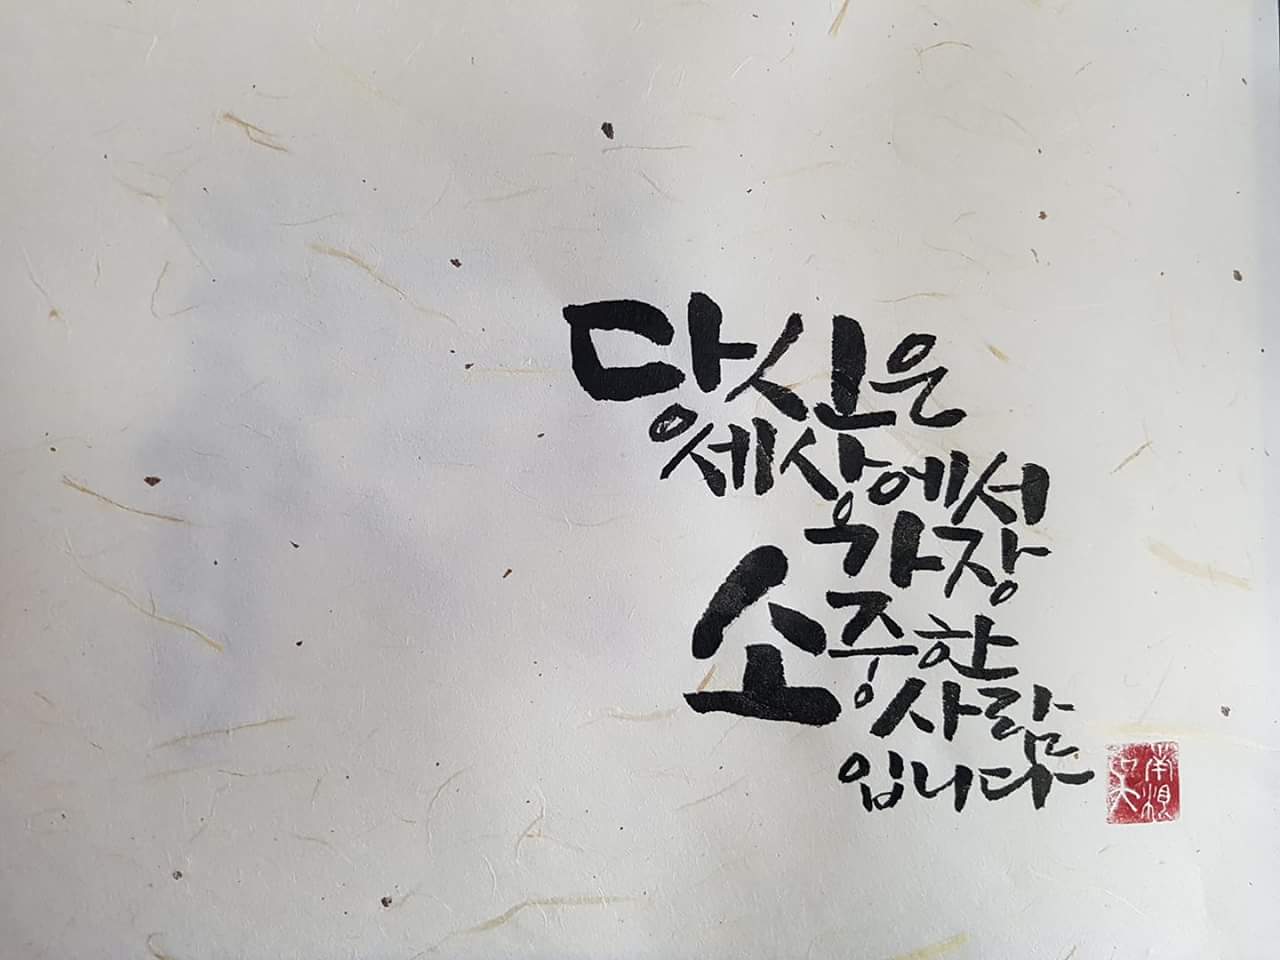 당신은
세상에서
가장
소중한
사람
입니다